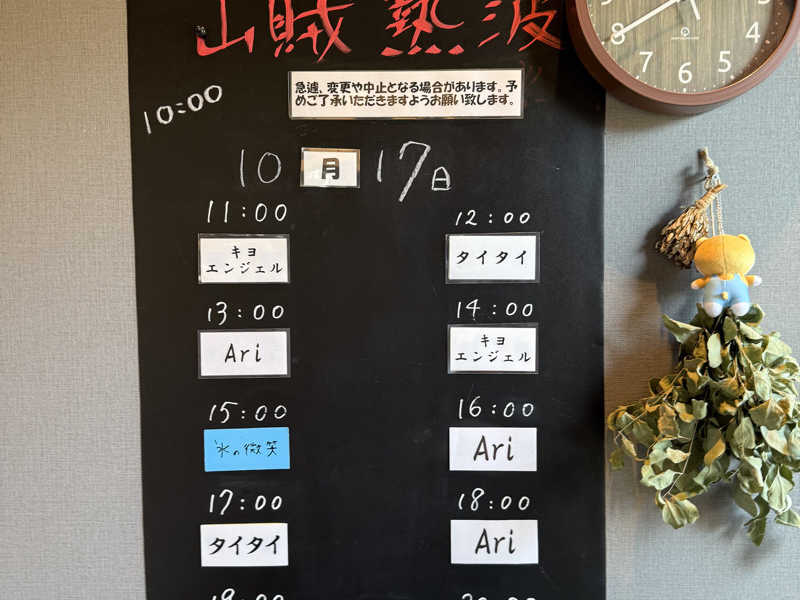 山賊熱波
急遽、変更や中止となる場合があります。予
めご了承いただきますようお願い致します。
10:00
10月17日
11:00
キヨ
エンジェル
12:00
タイタイ
13:00
Ari
14:00
キヨ
エンジェル
15:00
氷の微笑
16:00
Ari
17:00
タイタイ
18:00
Ari
8
7
6
5
4
3